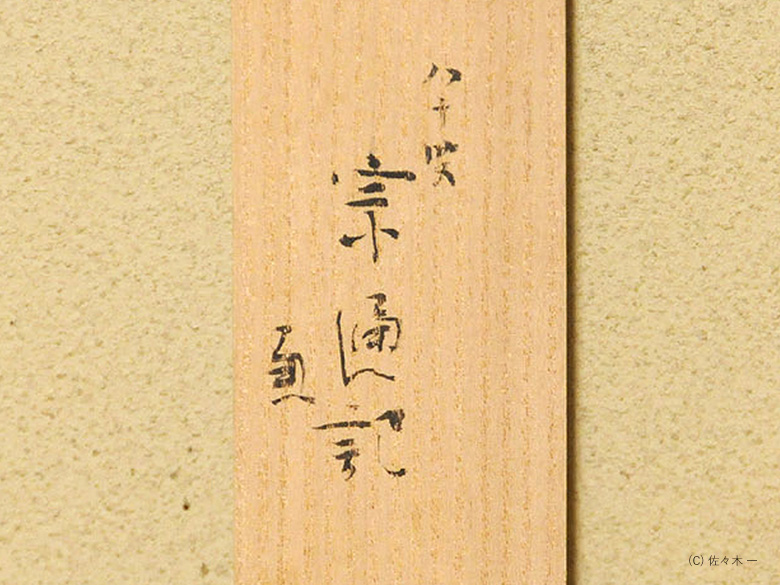 八十叟
宗通記
(C) 佐々木 一